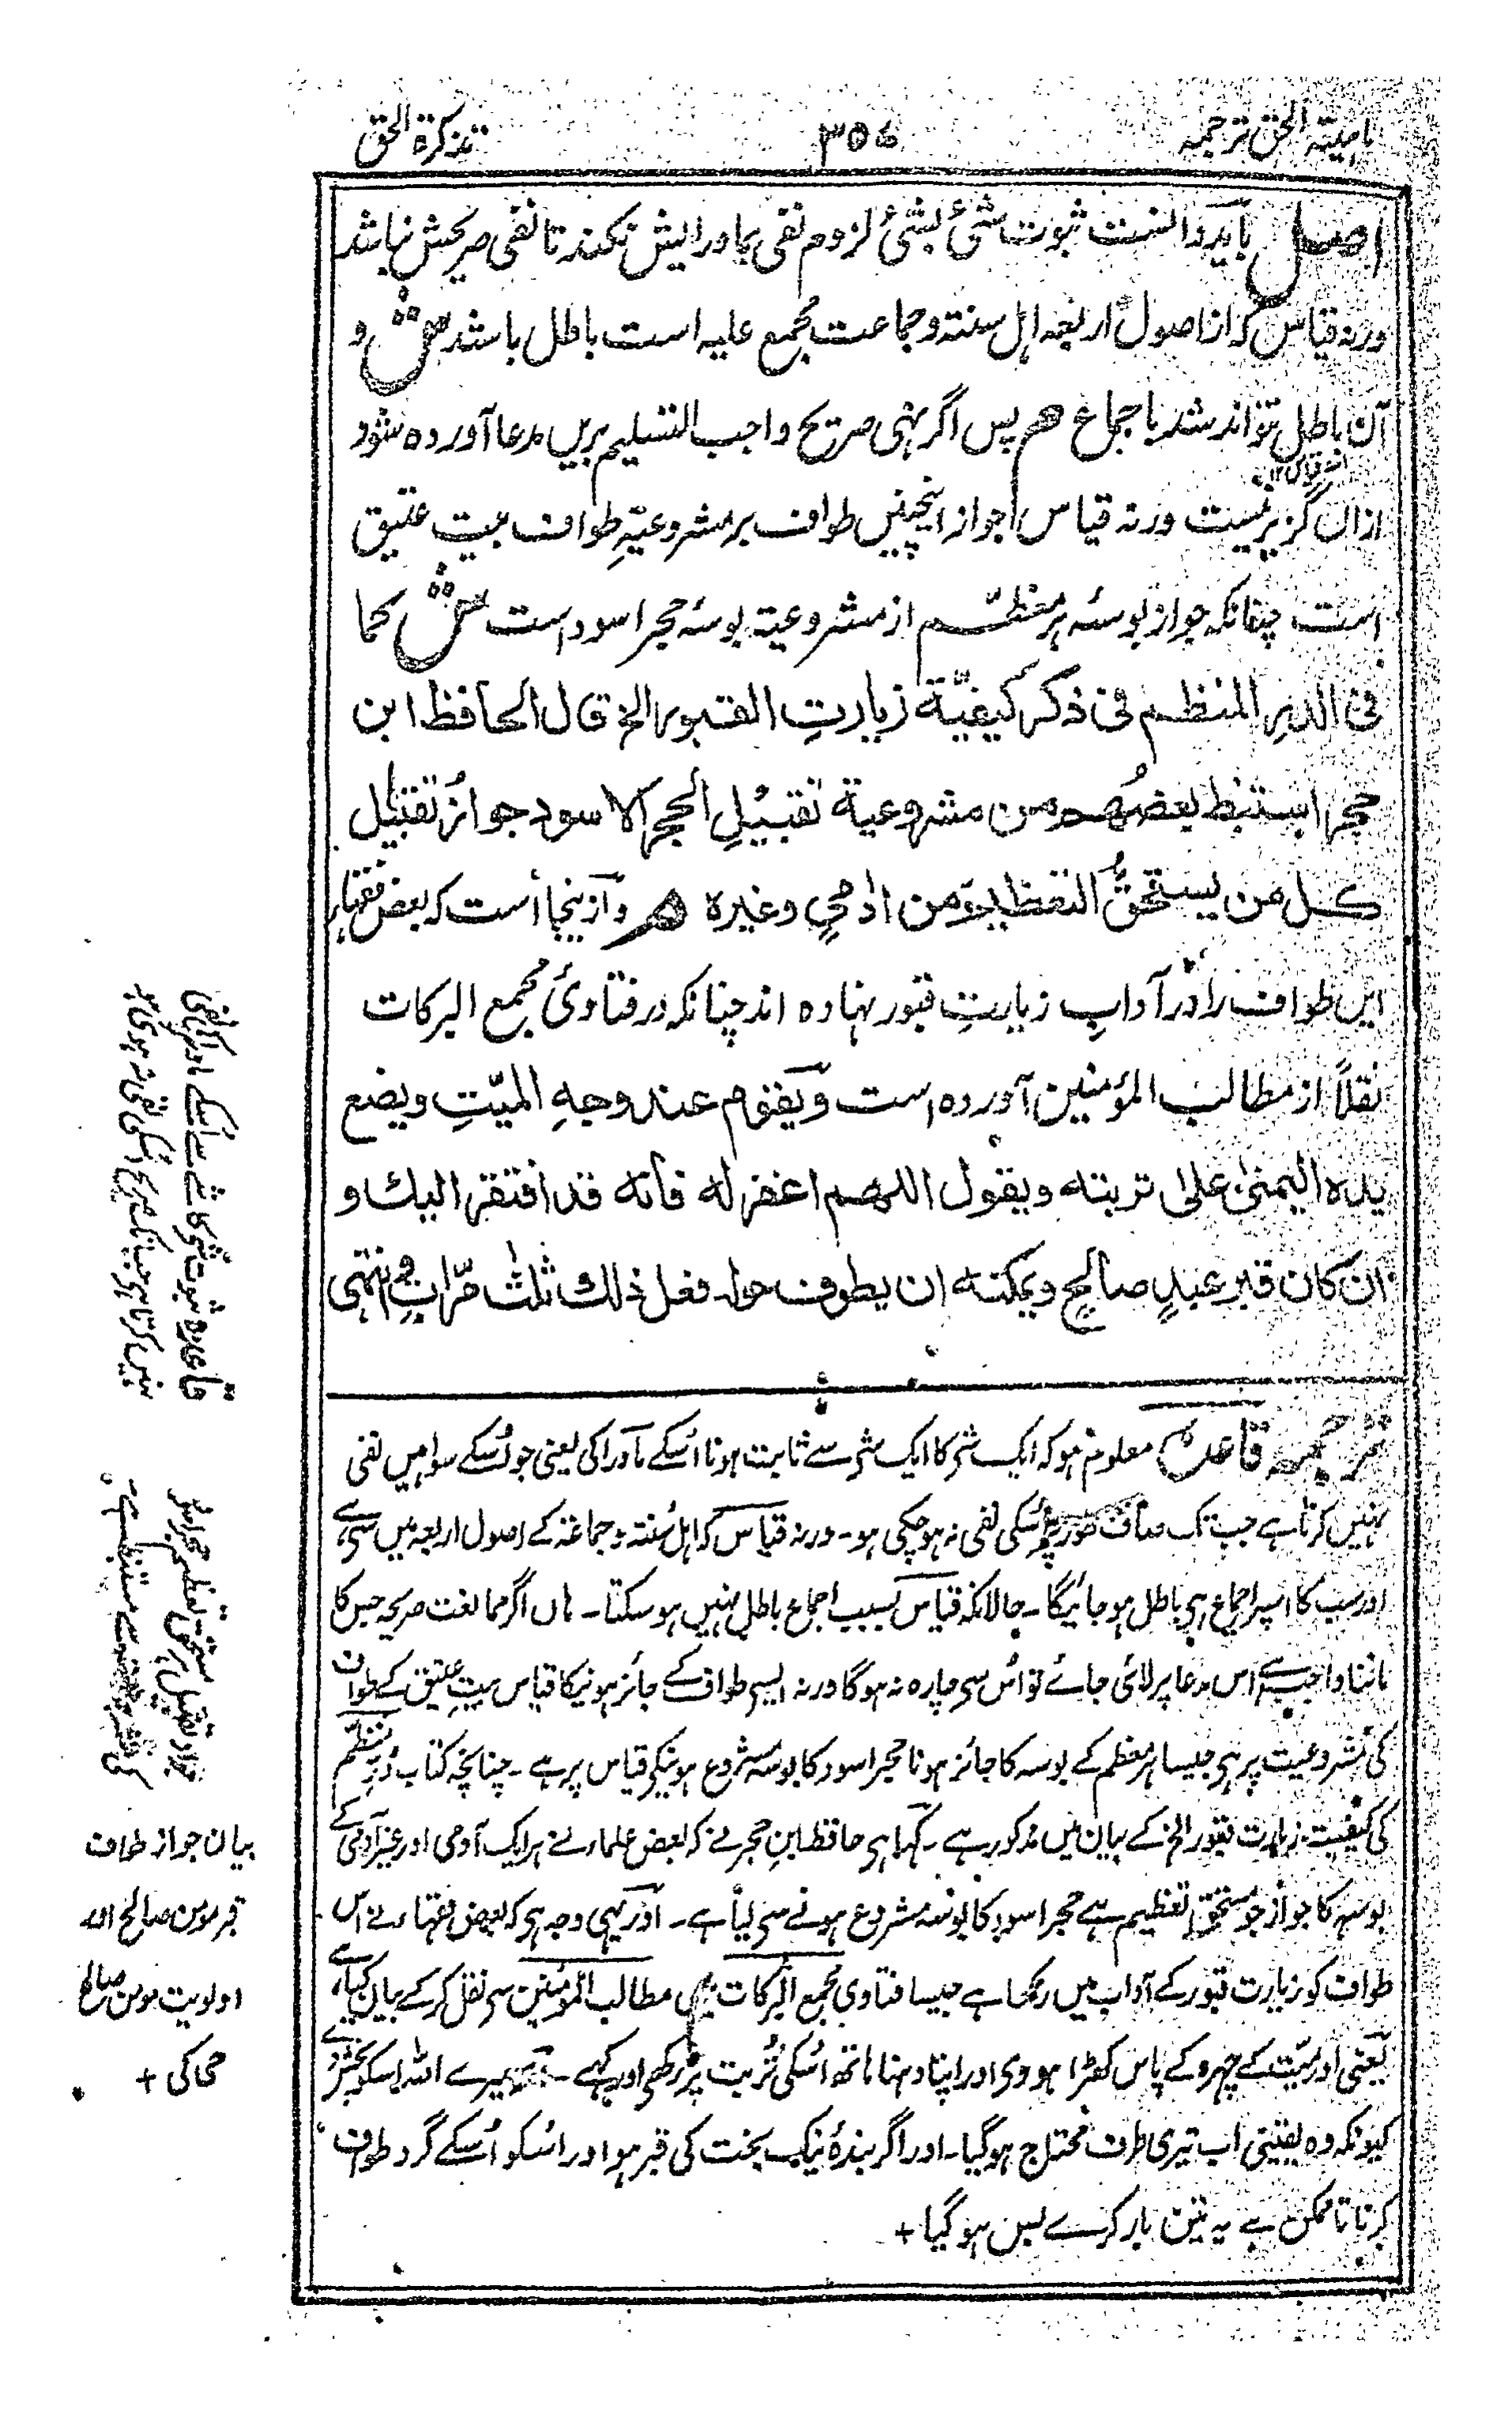 ترجمہ
۳۵۶
تذکرۃ الحق
اصل باید دانست ثبوت شئ بشئ لزوم نفی بماورایش نکند تا نفی صریحش نباشد
ورنہ قیاس کہ از اصول اربعہ اہل سنتہ وجماعت مجمع علیہ است باطل باشد و
آن باطل نتواند شد باجماع هم پس اگر نہی صریح واجب التسلیم بریں مدعا آوردہ شود
ازان گزیر نیست ورنہ قیاس جواز اینچنیں طواف بر مشروعیۃِ طواف بیت عتیق
است چنانکہ جواز بوسۂ ہر معظّم از مشروعیۃ بوسۂ حجر اسود است کما
فی الدرِ المنظم فی ذکر کیفیّۃ زیارتِ القبور الخ قال الحافظ ابن
حجر استنبط بعضُهم من مشروعیۃ تقبیلِ الحجر الاسود جوازُ تقبیل
کل من یستحقُّ التعظیم من اٰدمیٍ وغیرہ وازینجا است کہ بعض فقہاء
ایں طواف را در آدابِ زیارتِ قبور نہادہ اند چنانکہ در فتاویٰ مجمع البرکات
نقلاً از مطالب المؤمنین آوردہ است ویقوم عند وجہِ المیّتِ ویضع
یدہ الیمنیٰ علیٰ تربتہ ویقول اللهم اغفر لہ فانہ قد افتقر الیک و
ان کان قبر عبدٍ صالحٍ ویمکنہ ان یطوف حولہ فعل ذلک ثلٰث مرّاتٍ انتہی
ترجمہ قاعدہ معلوم ہو کہ ایک شے کا ایک شے سے ثابت ہونا اُسکے ماورا کی یعنی جو اُسکے سوا ہیں نفی
نہیں کرتا ہے جب تک صاف طور پر اُسکی نفی نہ ہو چکی ہو۔ ورنہ قیاس کہ اہل سُنتہ وجماعۃ کے اصول اربعہ میں سے ہے
اور سب کا اسپر اجماع ہے باطل ہو جائیگا۔ حالانکہ قیاس بسبب اجماع باطل نہیں ہو سکتا۔ ہاں اگر ممانعت صریحہ جس کا
ماننا واجب ہے اس مدعا پر لائی جائے تو اُس سے چارہ نہ ہوگا ورنہ ایسے طواف کے جائز ہونیکا قیاس بیت عتیق کے طواف
کی مشروعیت پر ہے جیسا ہر معظم کے بوسہ کا جائز ہونا حجر اسود کا بوسہ مشروع ہونیکے قیاس پر ہے۔ چنانچہ کتاب دُرِ منظّم
کی کیفیت زیارت قبور الخ کے بیان میں مذکور ہے۔ کہا ہے حافظ ابن حجر نے کہ بعض علماء نے ہر ایک آدمی اور غیر آدمی کے
بوسہ کا جواز جو مستحق تعظیم ہے حجر اسود کا بوسہ مشروع ہونے سے لیا ہے۔ اور یہی وجہ ہے کہ بعض فقہاء نے اس
طواف کو زیارت قبور کے آداب میں رکھا ہے جیسا فتاویٰ مجمع البرکات میں مطالب المؤمنین سے نقل کر کے بیان کیا ہے
یعنی اور میّت کے چہرہ کے پاس کھڑا ہووے اور اپنا دہنا ہاتھ اُسکی تُربت پر رکھے اور کہے۔ میرے اللہ اسکو بخشدے
کیونکہ وہ یقینی اب تیری طرف محتاج ہو گیا۔ اور اگر بندۂ نیک بخت کی قبر ہو اور اسکو اُسکے گرد طواف
کرنا ممکن ہے یہ تین بار کرے بس ہو گیا +
قاعدہ ثبوت شے کا شے سے اُسکے ماورا کی نفی
نہیں کرتا ہے جب تک صریح اُسکی نفی نہ ہوئی ہو
جواز تقبیل ہر مستحق تعظیم حجر اسود
بیان جواز طواف
قبر مومن صالح اور
اولویت مومن صالح